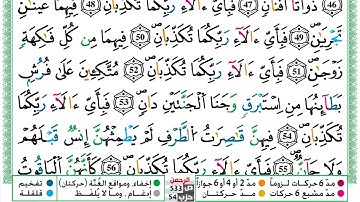 46 ذَوَاتَآ أَفْنَانٍ 47 فَبِأَيِّ ءَالَآءِ رَبِّكُمَا تُكَذِّبَانِ 48 فِيهِمَا عَيْنَانِ
تَجْرِيَانِ 49 فَبِأَيِّ ءَالَآءِ رَبِّكُمَا تُكَذِّبَانِ 50 فِيهِمَا مِن كُلِّ فَٰكِهَةٍ
زَوْجَانِ 51 فَبِأَيِّ ءَالَآءِ رَبِّكُمَا تُكَذِّبَانِ 52 مُتَّكِـِٔينَ عَلَىٰ فُرُشٍۭ
بَطَآئِنُهَا مِنْ إِسْتَبْرَقٍ وَجَنَى ٱلْجَنَّتَيْنِ دَانٍ 53 فَبِأَيِّ ءَالَآءِ رَبِّكُمَا
تُكَذِّبَانِ 54 فِيهِنَّ قَٰصِرَٰتُ ٱلطَّرْفِ لَمْ يَطْمِثْهُنَّ إِنسٌ قَبْلَهُمْ
وَلَا جَآنٌّ 55 فَبِأَيِّ ءَالَآءِ رَبِّكُمَا تُكَذِّبَانِ 56 كَأَنَّهُنَّ ٱلْيَاقُوتُ
مدّ 6 حركات لزوماً مدّ 2 أو 4 أو 6 جوازاً الرحمن ص 533 إخفاء، ومواقع الغُنَّة (حركتان) تفخيم
مدّ مشبع 6 حركات مدّ حركتان حزب 54 إدغام، وما لا يُلفَظ قلقلة